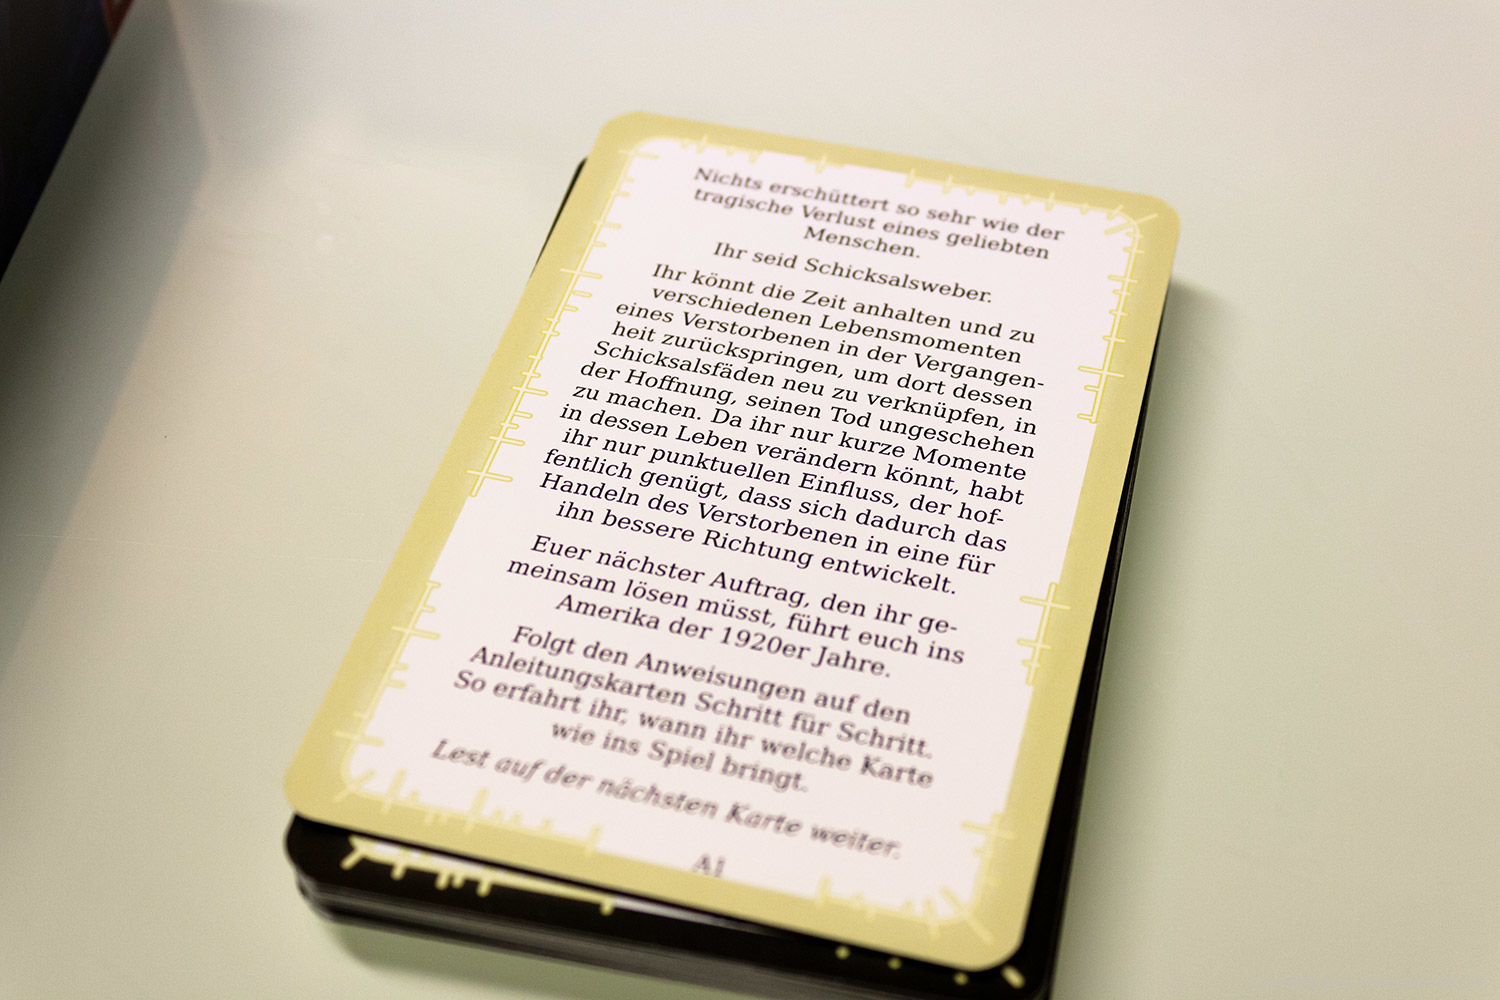 Nichts erschüttert so sehr wie der
tragische Verlust eines geliebten
Menschen.
Ihr seid Schicksalsweber.
Ihr könnt die Zeit anhalten und zu
verschiedenen Lebensmomenten
eines Verstorbenen in der Vergangen-
heit zurückspringen, um dort dessen
Schicksalsfäden neu zu verknüpfen, in
der Hoffnung, seinen Tod ungeschehen
zu machen. Da ihr nur kurze Momente
in dessen Leben verändern könnt, habt
ihr nur punktuellen Einfluss, der hof-
fentlich genügt, dass sich dadurch das
Handeln des Verstorbenen in eine für
ihn bessere Richtung entwickelt.
Euer nächster Auftrag, den ihr ge-
meinsam lösen müsst, führt euch ins
Amerika der 1920er Jahre.
Folgt den Anweisungen auf den
Anleitungskarten Schritt für Schritt.
So erfahrt ihr, wann ihr welche Karte
wie ins Spiel bringt.
Lest auf der nächsten Karte weiter.
A1